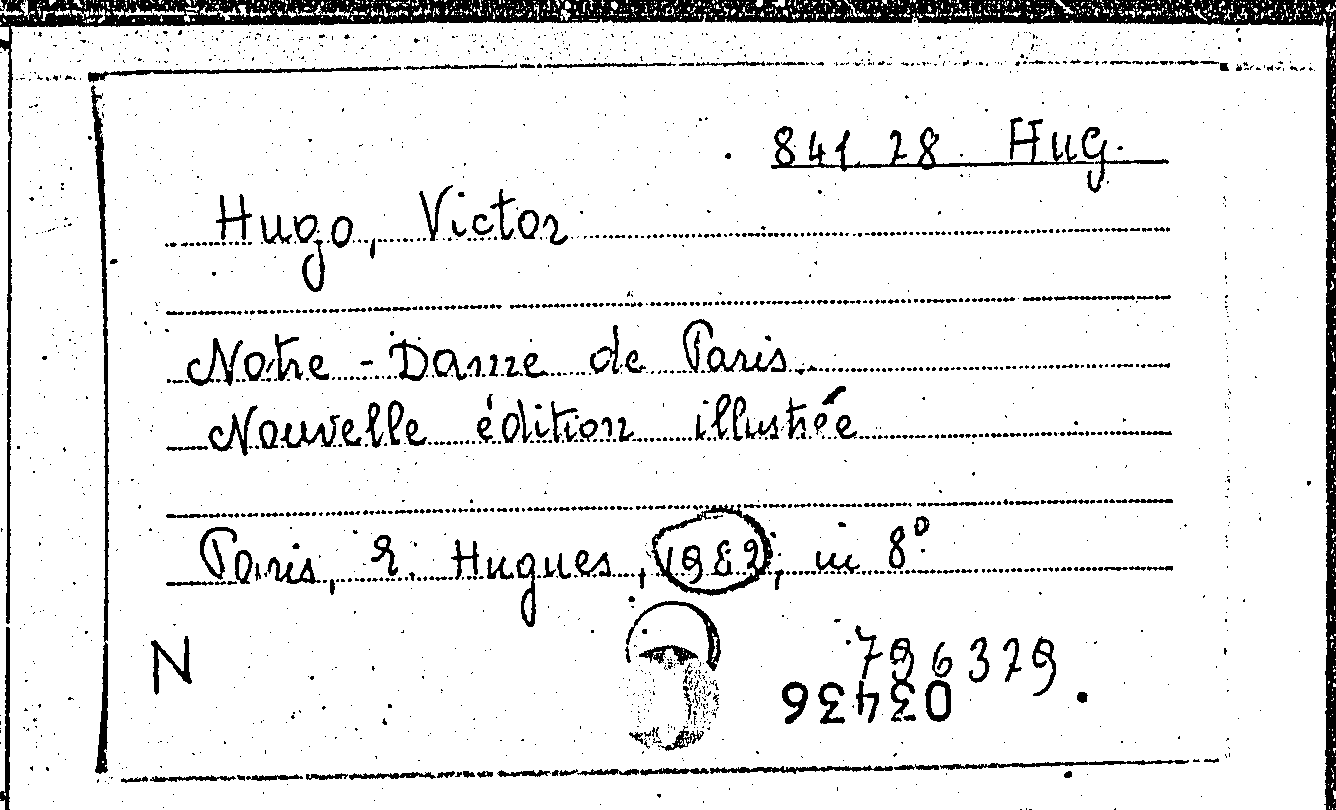 841.28 Hug.
Hugo, Victor
Notre-Dame de Paris.
Nouvelle édition illustrée
Paris, E. Hugues, 1982, in 8º.
N
796329
03436